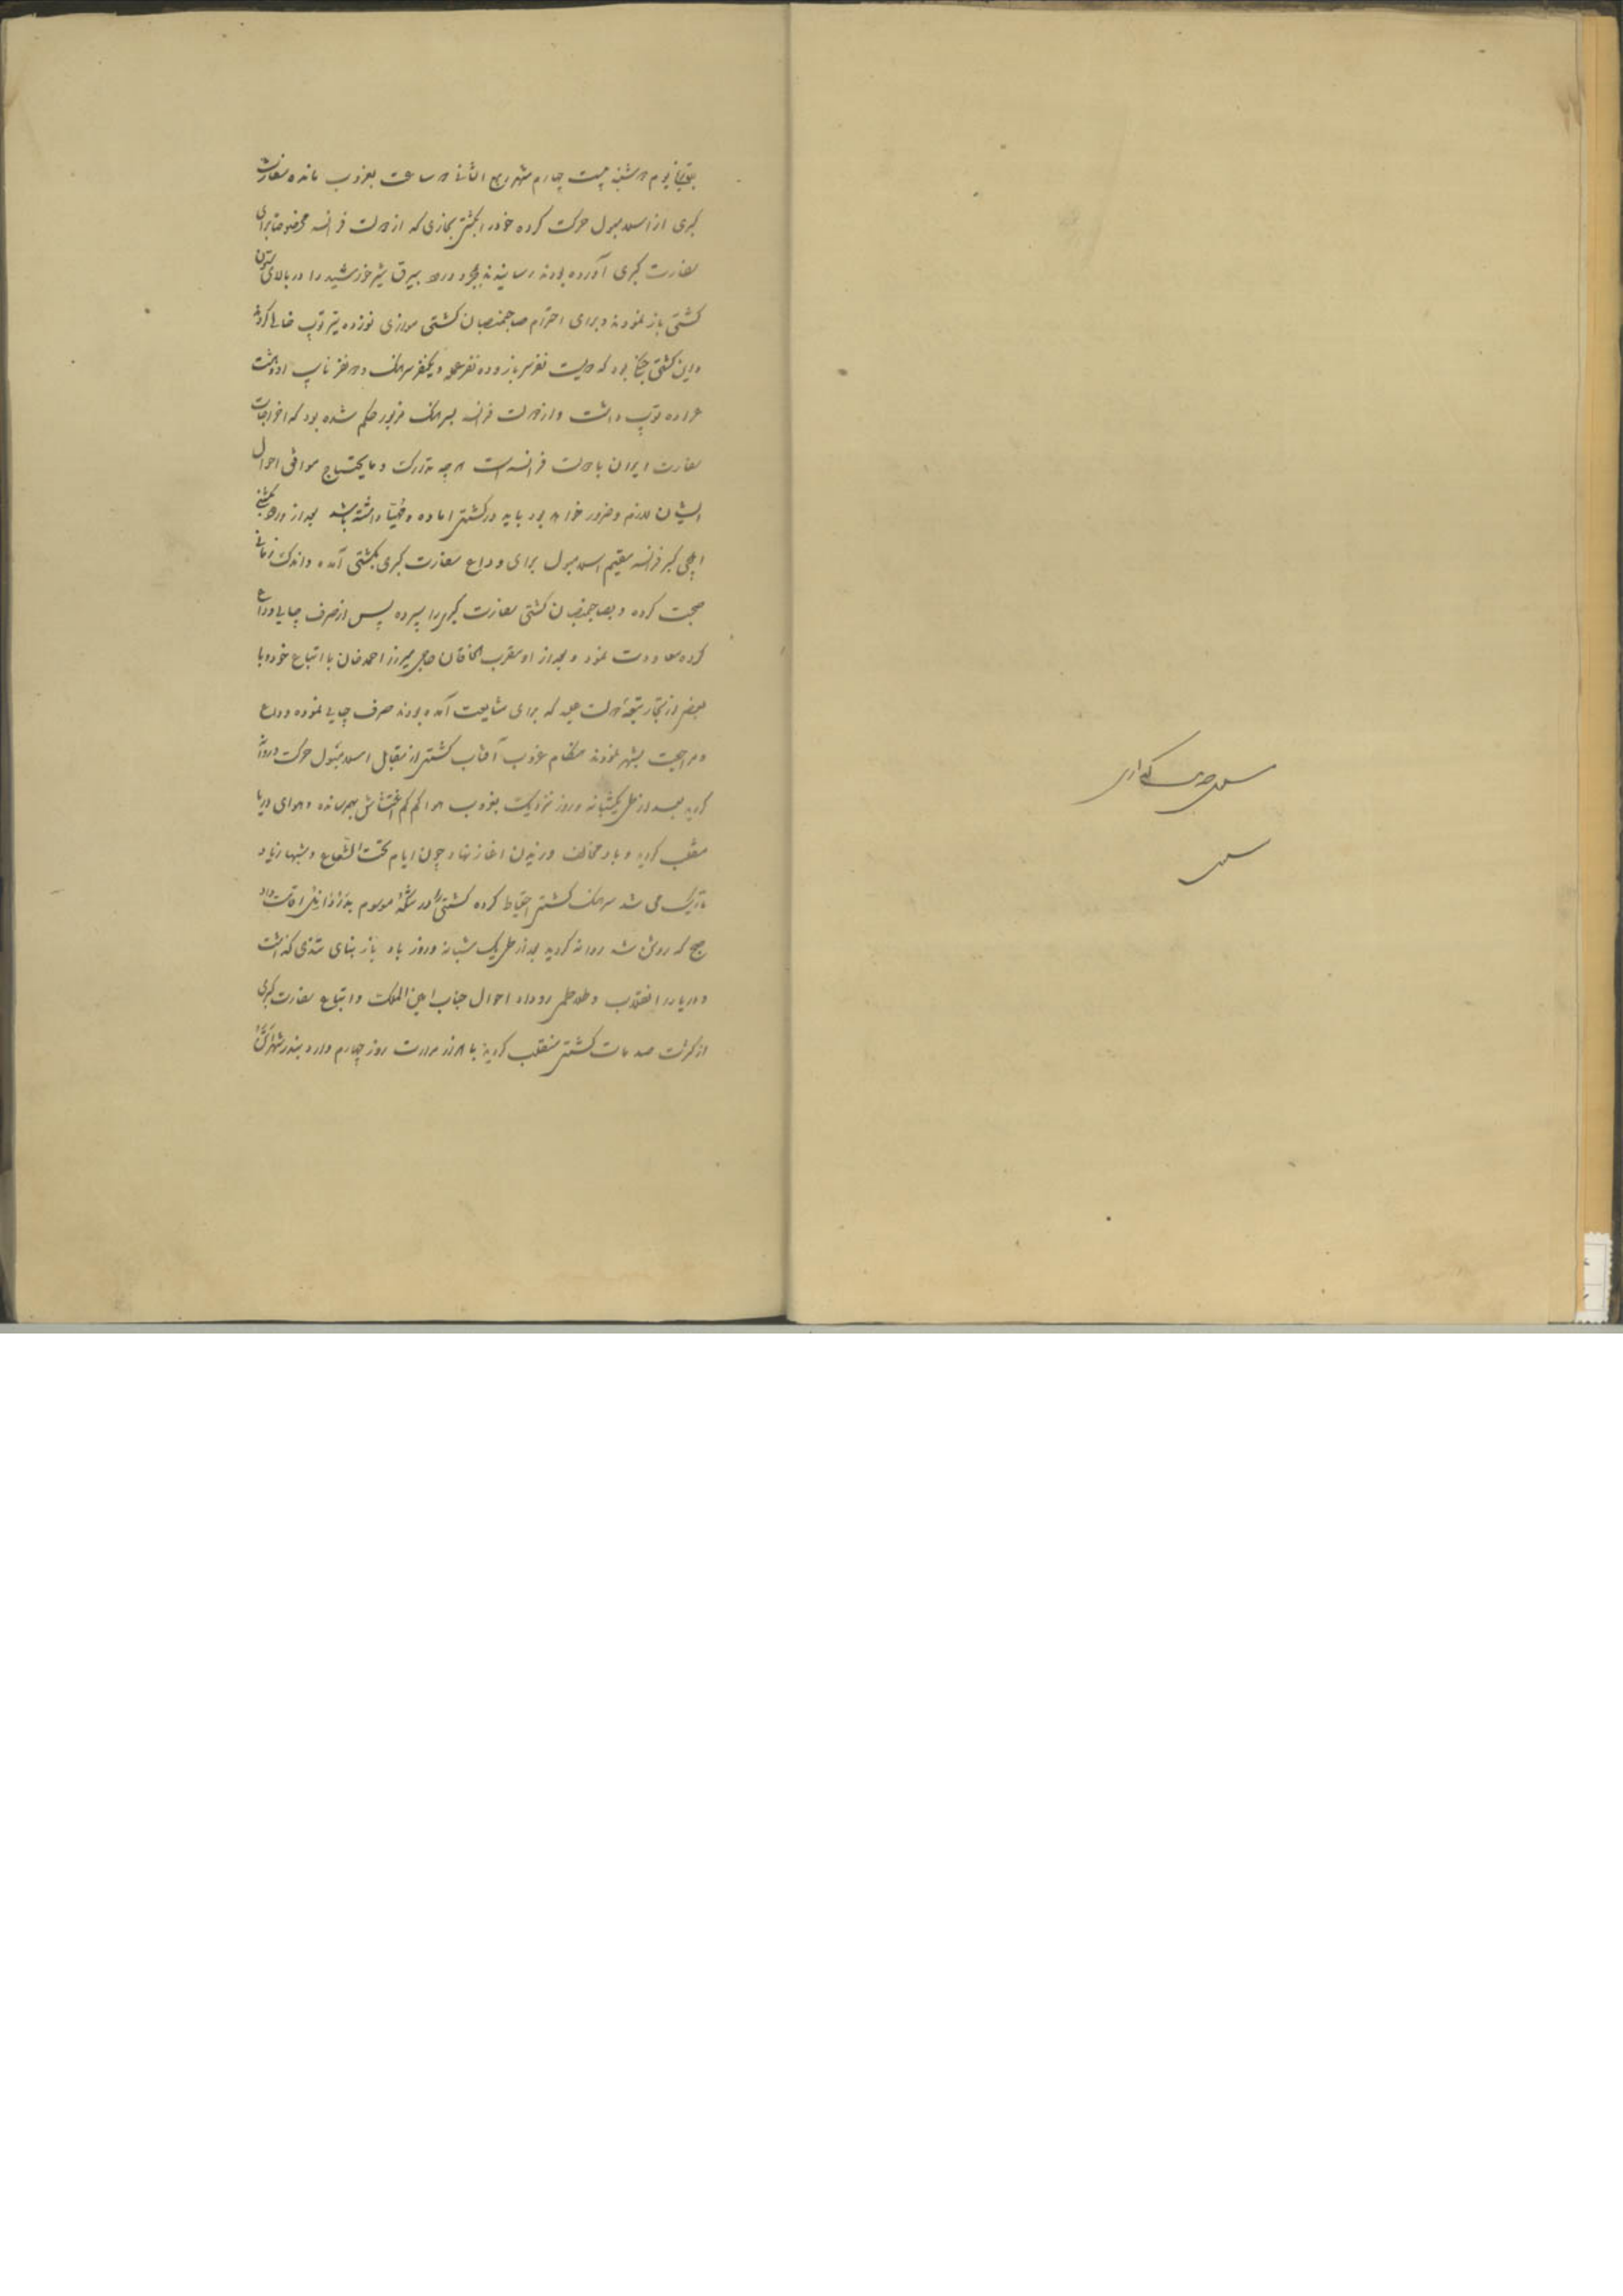 یوم دوشنبه بیست چهارم شهر ربیع الثانی دو ساعت بغروب مانده سفارت
کبری از اسلامبول حرکت کرده خود را بکشتی بخاری که از دولت فرانسه مخصوصا برای
سفارت کبری آورده بودند رسانیدند بمجرد ورود بیرق شیر خورشید را در بالای ستون
کشتی باز نمودند و برای احترام صاحبمنصبان کشتی موازی نوزده تیر توپ خالی کردند
و این کشتی جنگی بود که دویست نفر سرباز و ده نفر عمله و یکنفر سرهنگ و دو نفر نایب او و هشت
عراده توپ داشت و از دولت فرانسه بسرهنگ مزبور حکم شده بود که اخراجات
سفارت ایران با دولت فرانسه است هر چه تدارکت و مایحتاج موافق احوال
ایشان لازم و ضرور خواهد بود باید در کشتی اماده و مهیا داشته باشد بعد از ورود بکشتی
ایلچی کبیر فرانسه مقیم اسلامبول برای وداع سفارت کبری بکشتی آمده و اندک زمانی
صحبت کرده و بصاحبمنصبان کشتی سفارت کبری را سپرده پس از صرف چایی وداع
کرده معاودت نمود و بعد از او مقرب الخاقان حاجی میرزا احمد خان با اتباع خود و با
بعضی از تجار تبعه دولت علیه که برای مشایعت آمده بودند صرف چایی نموده وداع
و مراجعت بشهر نمودند هنگام غروب آفتاب کشتی از مقابل اسلامبول حرکت و روانه
گردید بعد از طی یکشبانه و روز نزدیکت بغروب هوا کم کم اغتشاش بهمرسانده و هوای دریا
منقلب گردید و باد مخالف وزیدن اغاز نهاد چون ایام تحت الشعاع و شبها زیاد
تاریک می شد سرهنگ کشتی احتیاط کرده کشتی را در تنگه موسوم اقامت داد
صبح که روشن شد روانه گردید بعد از طی یک شبانه و روز باد باز بنای تندی گذاشت
و دریا را انقلاب و طلاطمی رو داد احوال جناب امین الملک و اتباع سفارت کبری
از کثرت صدمات کشتی منقلب گردید با هزار مرارت روز چهارم وارد بندر شهر